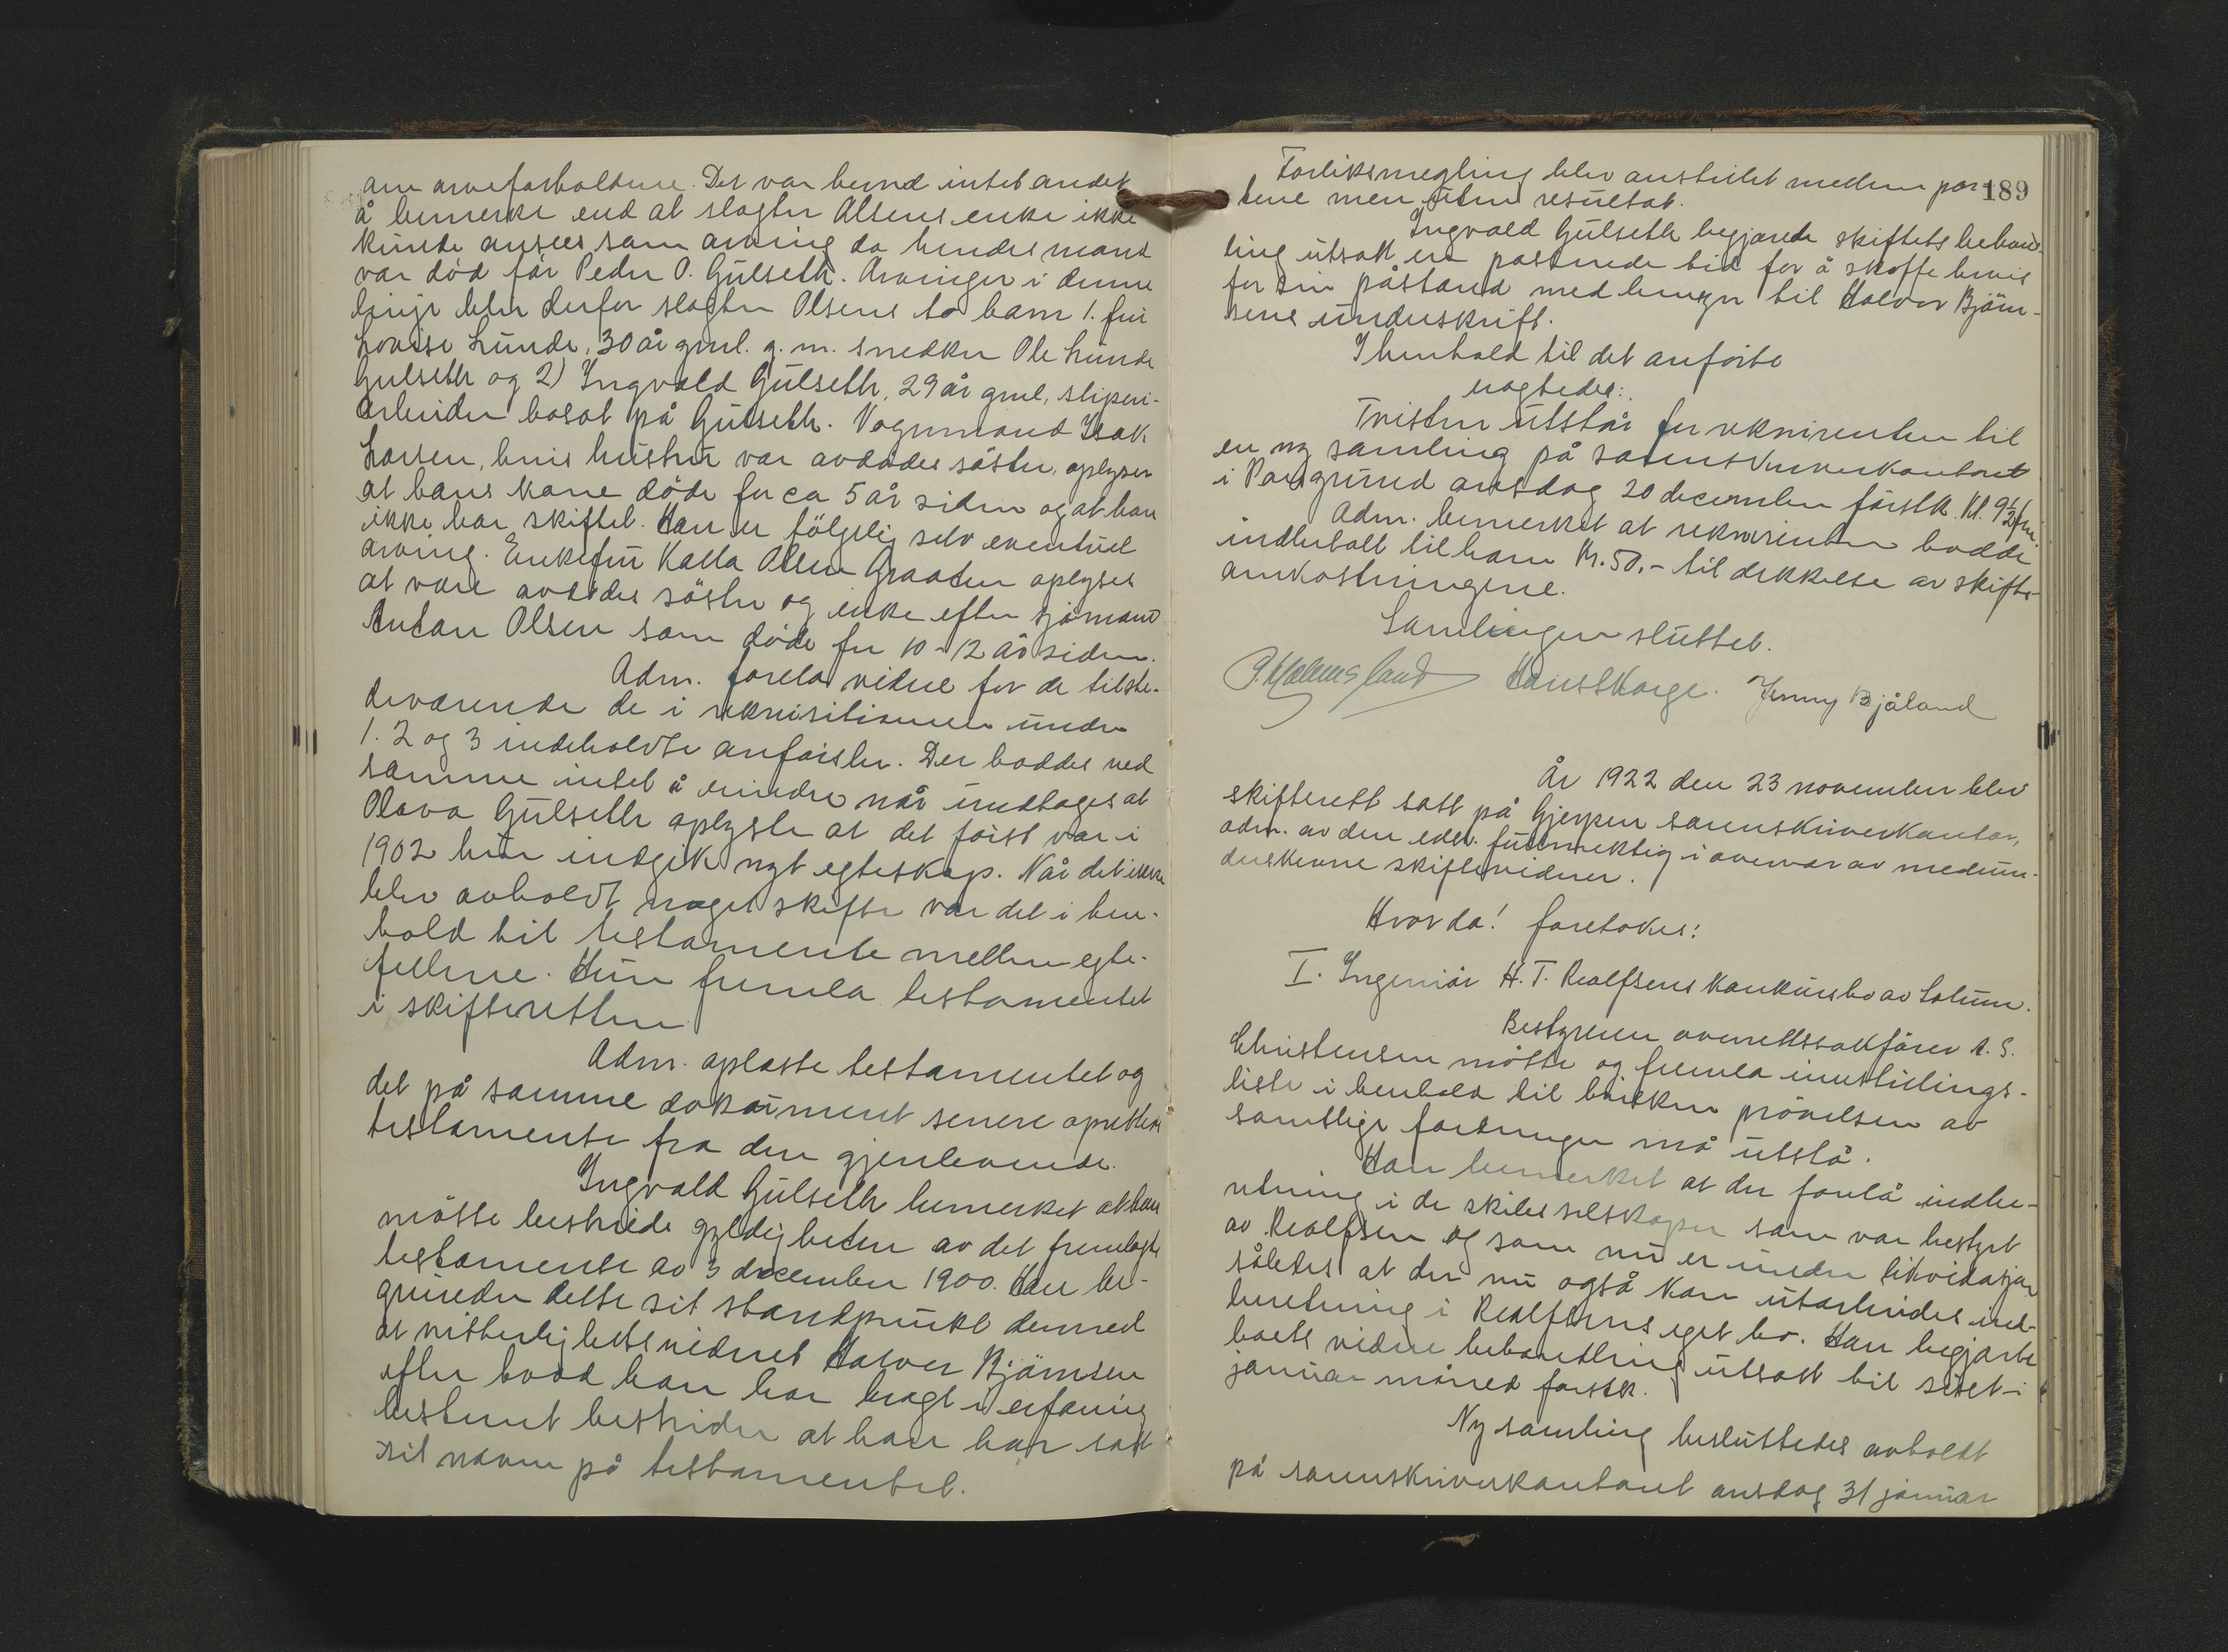 om arveforholdene. Det var herved intet andet
å bemerke end at slagter Olsens enke ikke
kunde ansees som arving da hendes mand
var död för Peder O. Gulseth. Arvinger i denne
linje blev derfor slagter Olsens to barn 1. fru
Lovise Lunde, 30 år gml. g. m. snedker Ole Lunde
Gulseth og 2) Ingvald Gulseth, 29 år gml, sliperi-
arbeider bosat på Gulseth. Vognmand Isak
Larsen, hvis hustru var avdödes söster, oplyser
at hans kone döde for ca 5 år siden og at han
ikke har skiftet. Han er fölgelig selv eventuel
arving. Enkefru Kalla Olsen Graaten oplyses
at være avdödes söster og enke efter sjömand
Anton Olsen som döde for 10-12 år siden.
Adm. forela videre for de tilste-
deværende de i rekvisitionen under
1. 2 og 3 indeholdte anförsler. Der hadde ved
samme intet å erindre når undtages at
Olava Gulseth oplyste at det först var i
1902 hun indgik nyt egteskap. Når det ikke
blev avholdt noget skifte var det i hen-
hold til testamente mellem egte-
fellene. Hun fremla testamentet
i skifteretten.
Adm. oplæste testamentet og
det på samme dokument senere oprettede
testamente fra den gjenlevende.
Ingvald Gulseth bemerket at han
måtte bestride gyldigheten av det fremlagte
testamente av 3 december 1900. Han be-
grunder dette sit standpunkt dermed
at vitterlighetsvidnet Halvor Björnsen
efter hvad han har bragt i erfaring
bestemt bestrider at han har satt
sit navn på testamentet.
189
Forliksmegling blev anstillet mellem par-
tene men uten resultat.
Ingvald Gulseth begjærede skiftets behand-
ling utsatt en passende tid for å skaffe bevis
for sin påstand med hensyn til Halvor Björn-
sens underskrift.
I henhold til det anförte
eragtedes:
Tvisten utstår for rekvirenten til
en ny samling på sorenskriverkontoret
i Porsgrund onsdag 20 december förstk. kl. 9½ fm.
Adm. bemerket at rekvirenten hadde
indbetalt til ham kr. 50.- til dekkelse av skifte-
omkostningene.
Samlingen sluttet.
Hans Skarge. Jenny Bjåland
År 1922 den 23 november blev
skifterett satt på Gjerpen sorenskriverkontor,
adm. av den edsv. fuldmektig i overvær av medun-
derskrevne skiftevidner.
Hvor da! foretokes:
I. Ingeniör H. T. Realfsens konkursbo av Solum.
Bestyreren overrettssakförer A. S.
Christensen mötte og fremla innstillings-
liste i henhold til hvilken prövelsen av
samtlige fordringer må utstå.
Han bemerket at der forelå indbe-
retning i de skibsselskaper som var bestyrt
av Realfsen og som nu er under likvidasjon
således at der nu også kan utarbeides ind-
beretning i Realfsens eget bo. Han begjærte
boets videre behandling utsatt til sidst i
januar måned förstk.
Ny samling besluttedes avholdt
på sorenskriverkontoret onsdag 31 januar